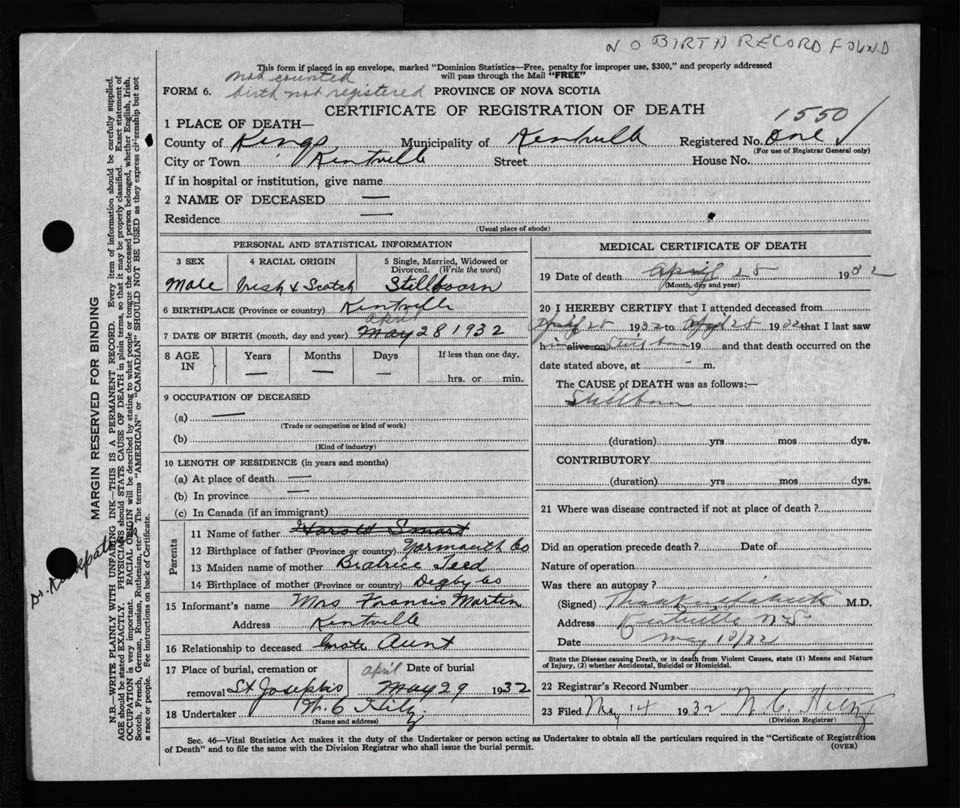 NO BIRTH RECORD FOUND
This form if placed in an envelope, marked "Dominion Statistics—Free, penalty for improper use, $300," and properly addressed
will pass through the Mail "FREE"
not counted
birth not registered
FORM 6.
PROVINCE OF NOVA SCOTIA
CERTIFICATE OF REGISTRATION OF DEATH
1550
1 PLACE OF DEATH—
County of Kings Municipality of Kentville Registered No. One
(For use of Registrar General only)
City or Town Kentville Street House No.
If in hospital or institution, give name
2 NAME OF DECEASED —
Residence —
(Usual place of abode)
PERSONAL AND STATISTICAL INFORMATION
3 SEX
Male
4 RACIAL ORIGIN
Irish & Scotch
5 Single, Married, Widowed or
Divorced. (Write the word)
Stillborn
6 BIRTHPLACE (Province or country) Kentville
April
7 DATE OF BIRTH (month, day and year) May 28 1932
8 AGE
IN
Years
—
Months
—
Days
—
If less than one day.
hrs. or min.
9 OCCUPATION OF DECEASED
(a) —
(Trade or occupation or kind of work)
(b)
(Kind of industry)
10 LENGTH OF RESIDENCE (in years and months)
(a) At place of death —
(b) In province —
(c) In Canada (if an immigrant)
Parents
11 Name of father Harold Smart
12 Birthplace of father (Province or country) Yarmouth Co
13 Maiden name of mother Beatrice
14 Birthplace of mother (Province or country) Digby Co
15 Informant's name Mrs Francis Martin
Address Kentville
16 Relationship to deceased Aunt
17 Place of burial, cremation or
removal St Josephs
April Date of burial
May 29 1932
18 Undertaker
(Name and address)
MEDICAL CERTIFICATE OF DEATH
19 Date of death April 28 1932
(Month, day and year)
20 I HEREBY CERTIFY that I attended deceased from
April 28 1932 to April 28 1932 that I last saw
h alive on 19 and that death occurred on the
date stated above, at - m.
The CAUSE of DEATH was as follows:—
Stillborn
(duration) yrs mos dys.
CONTRIBUTORY
(duration) yrs mos dys.
21 Where was disease contracted if not at place of death?
Did an operation precede death? Date of
Nature of operation
Was there an autopsy?
(Signed) M.D.
Address Kentville N.S.
Date May 10/32
State the Disease causing Death, or in death from Violent Causes, state (1) Means and Nature
of Injury, (2) whether Accidental, Suicidal or Homicidal.
22 Registrar's Record Number
23 Filed May 14 1932
(Division Registrar)
Sec. 46—Vital Statistics Act makes it the duty of the Undertaker or person acting as Undertaker to obtain all the particulars required in the "Certificate of Registration
of Death" and to file the same with the Division Registrar who shall issue the burial permit.
(OVER)
MARGIN RESERVED FOR BINDING
N.B.—WRITE PLAINLY WITH UNFADING INK—THIS IS A PERMANENT RECORD. Every item of information should be carefully supplied.
AGE should be stated EXACTLY. PHYSICIANS should STATE CAUSE OF DEATH in plain terms, so that it may be properly classified. Exact statement of
OCCUPATION is very important. RACIAL ORIGIN will be described by stating to what people or tongue the deceased person belonged, whether English, Irish,
Scotch, French, German, Russian, Ruthenian, etc. The terms "AMERICAN" or "CANADIAN" SHOULD NOT BE USED as they express citizenship but not
a race or people. See instructions on back of Certificate.